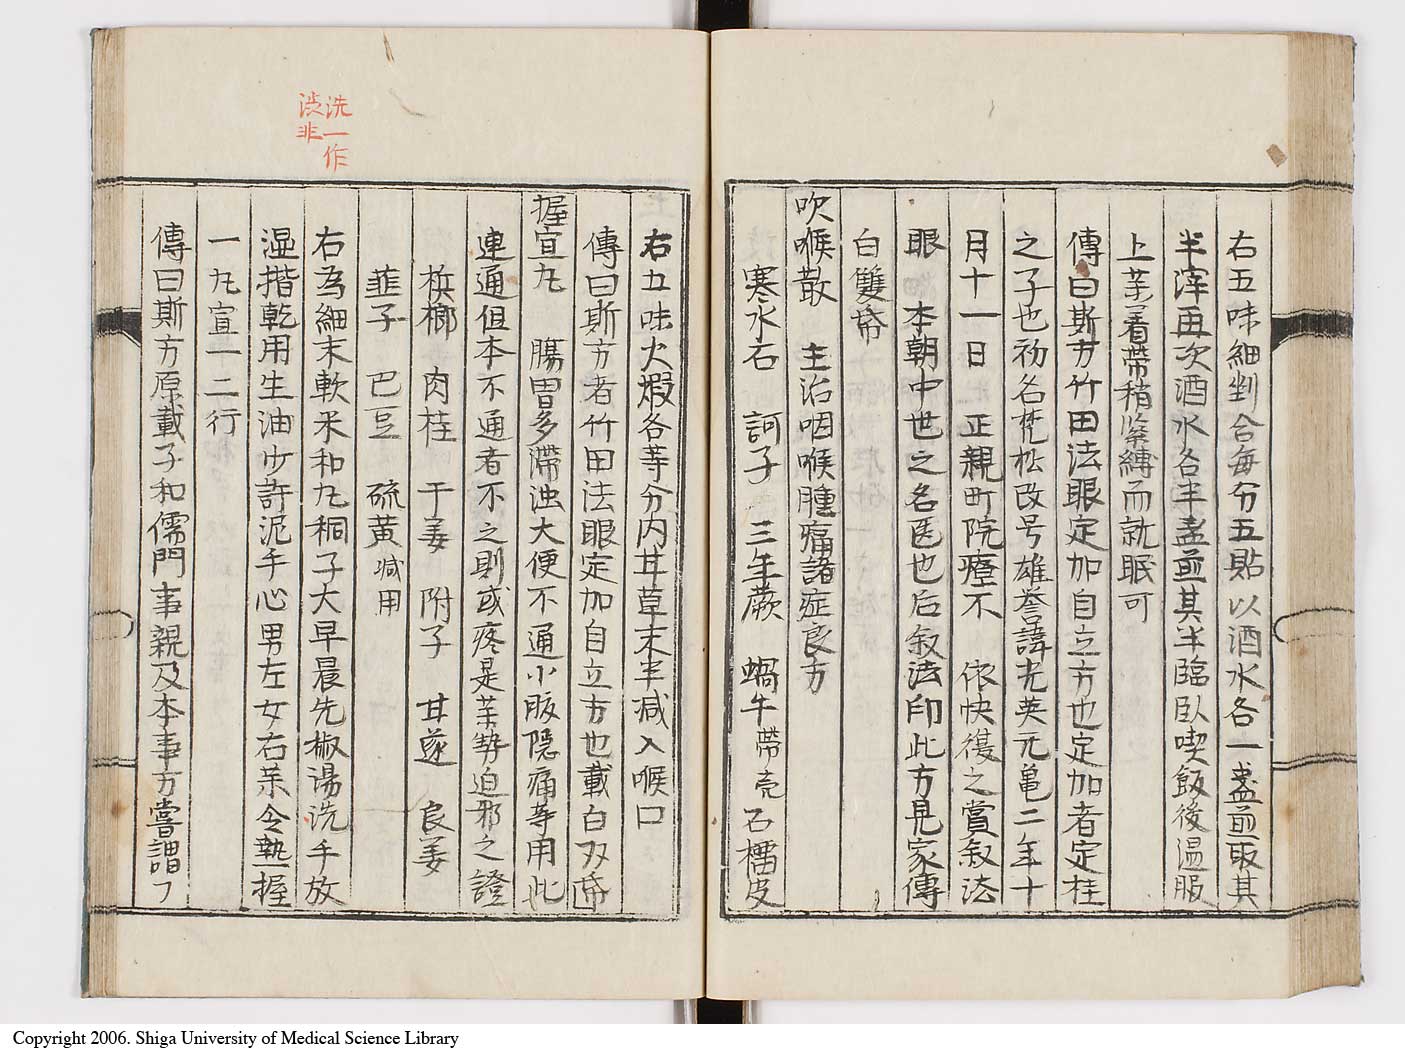 右五味細剉合每夯五貼以酒水各一盞煎取其
半滓再次酒水各半盞煎其半臨臥喫飯後温服
上茱看帶稍緊縛而就眠可
傳曰斯方竹田法眼定加自立方也定加者定桂
之子也初名梵松改号雄誉諱光英元亀二年十
月十一日　正親町院瘞不　依快復之賞叙法
眼　本朝中世之名医也后叙法印此方見家傳
白雙帋
吹喉散　主治咽喉腫痛諸症良方
寒水石　訶子　三年蕨　蝸牛帶壳　石榴皮
右五味火煆各等分内甘草末半减入喉口
傳曰斯方者竹田法眼定加自立方也載白双帋
握宣丸　腸胃多滯浊大便不通小腹隠痛等用此
連通但本不通者不之則或疼是茱势迫邪之證
檳榔　肉桂　干姜　附子　甘遂　良姜
韮子　巴豆　硫黄减用
右為細末軟米和丸桐子大早晨先椒湯洗手放
湿揩乾用生油少許泥手心男左女右茱令執握
一丸宣一二行
傳曰斯方原載子和儒門事親及本事方嘗謂了
洗一作
渋非
Copyright 2006. Shiga University of Medical Science Library